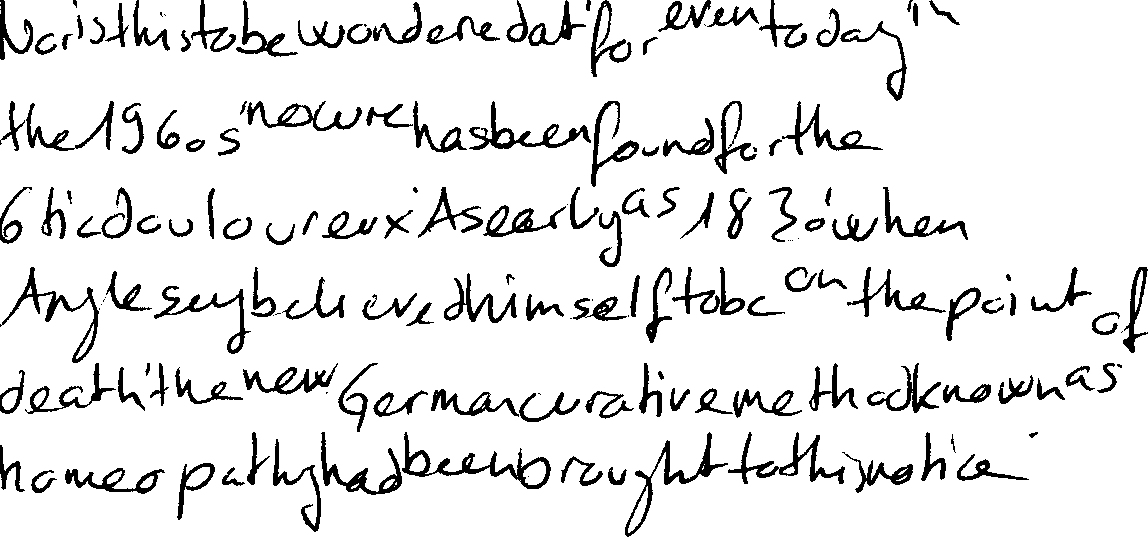 Nor is this to be wondered at' for even today" in
the 1960s "no cure has been found for the
6 tic douloureux. As early as 1830' when
Anglesey believed himself to be on the point of
death' the new German curative method known as
homeopathy had been brought to this notice.